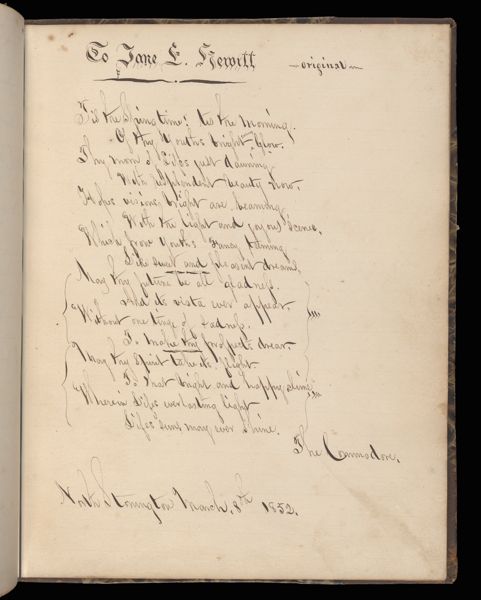 To Jane E. Hewitt
—original—
Tis the Spring time! tis the Morning,
Of thy Youth's bright glow.
Thy morn of Life's just dawning,
With resplendent beauty now,
Hope's visions bright are beaming
With the light and joyous scenes,
Which from Youth's Fancy
Like sweet and pleasant dreams,
May thy future be all gladness.
And its vista ever appear,
Without one tinge of sadness,
To make thy prospects drear.
May thy Spirit take its flight
To that bright and happy clime
Wherein Life's everlasting light
Life's suns may ever shine.
The Commodore.
North Stonington March, 8th 1852.